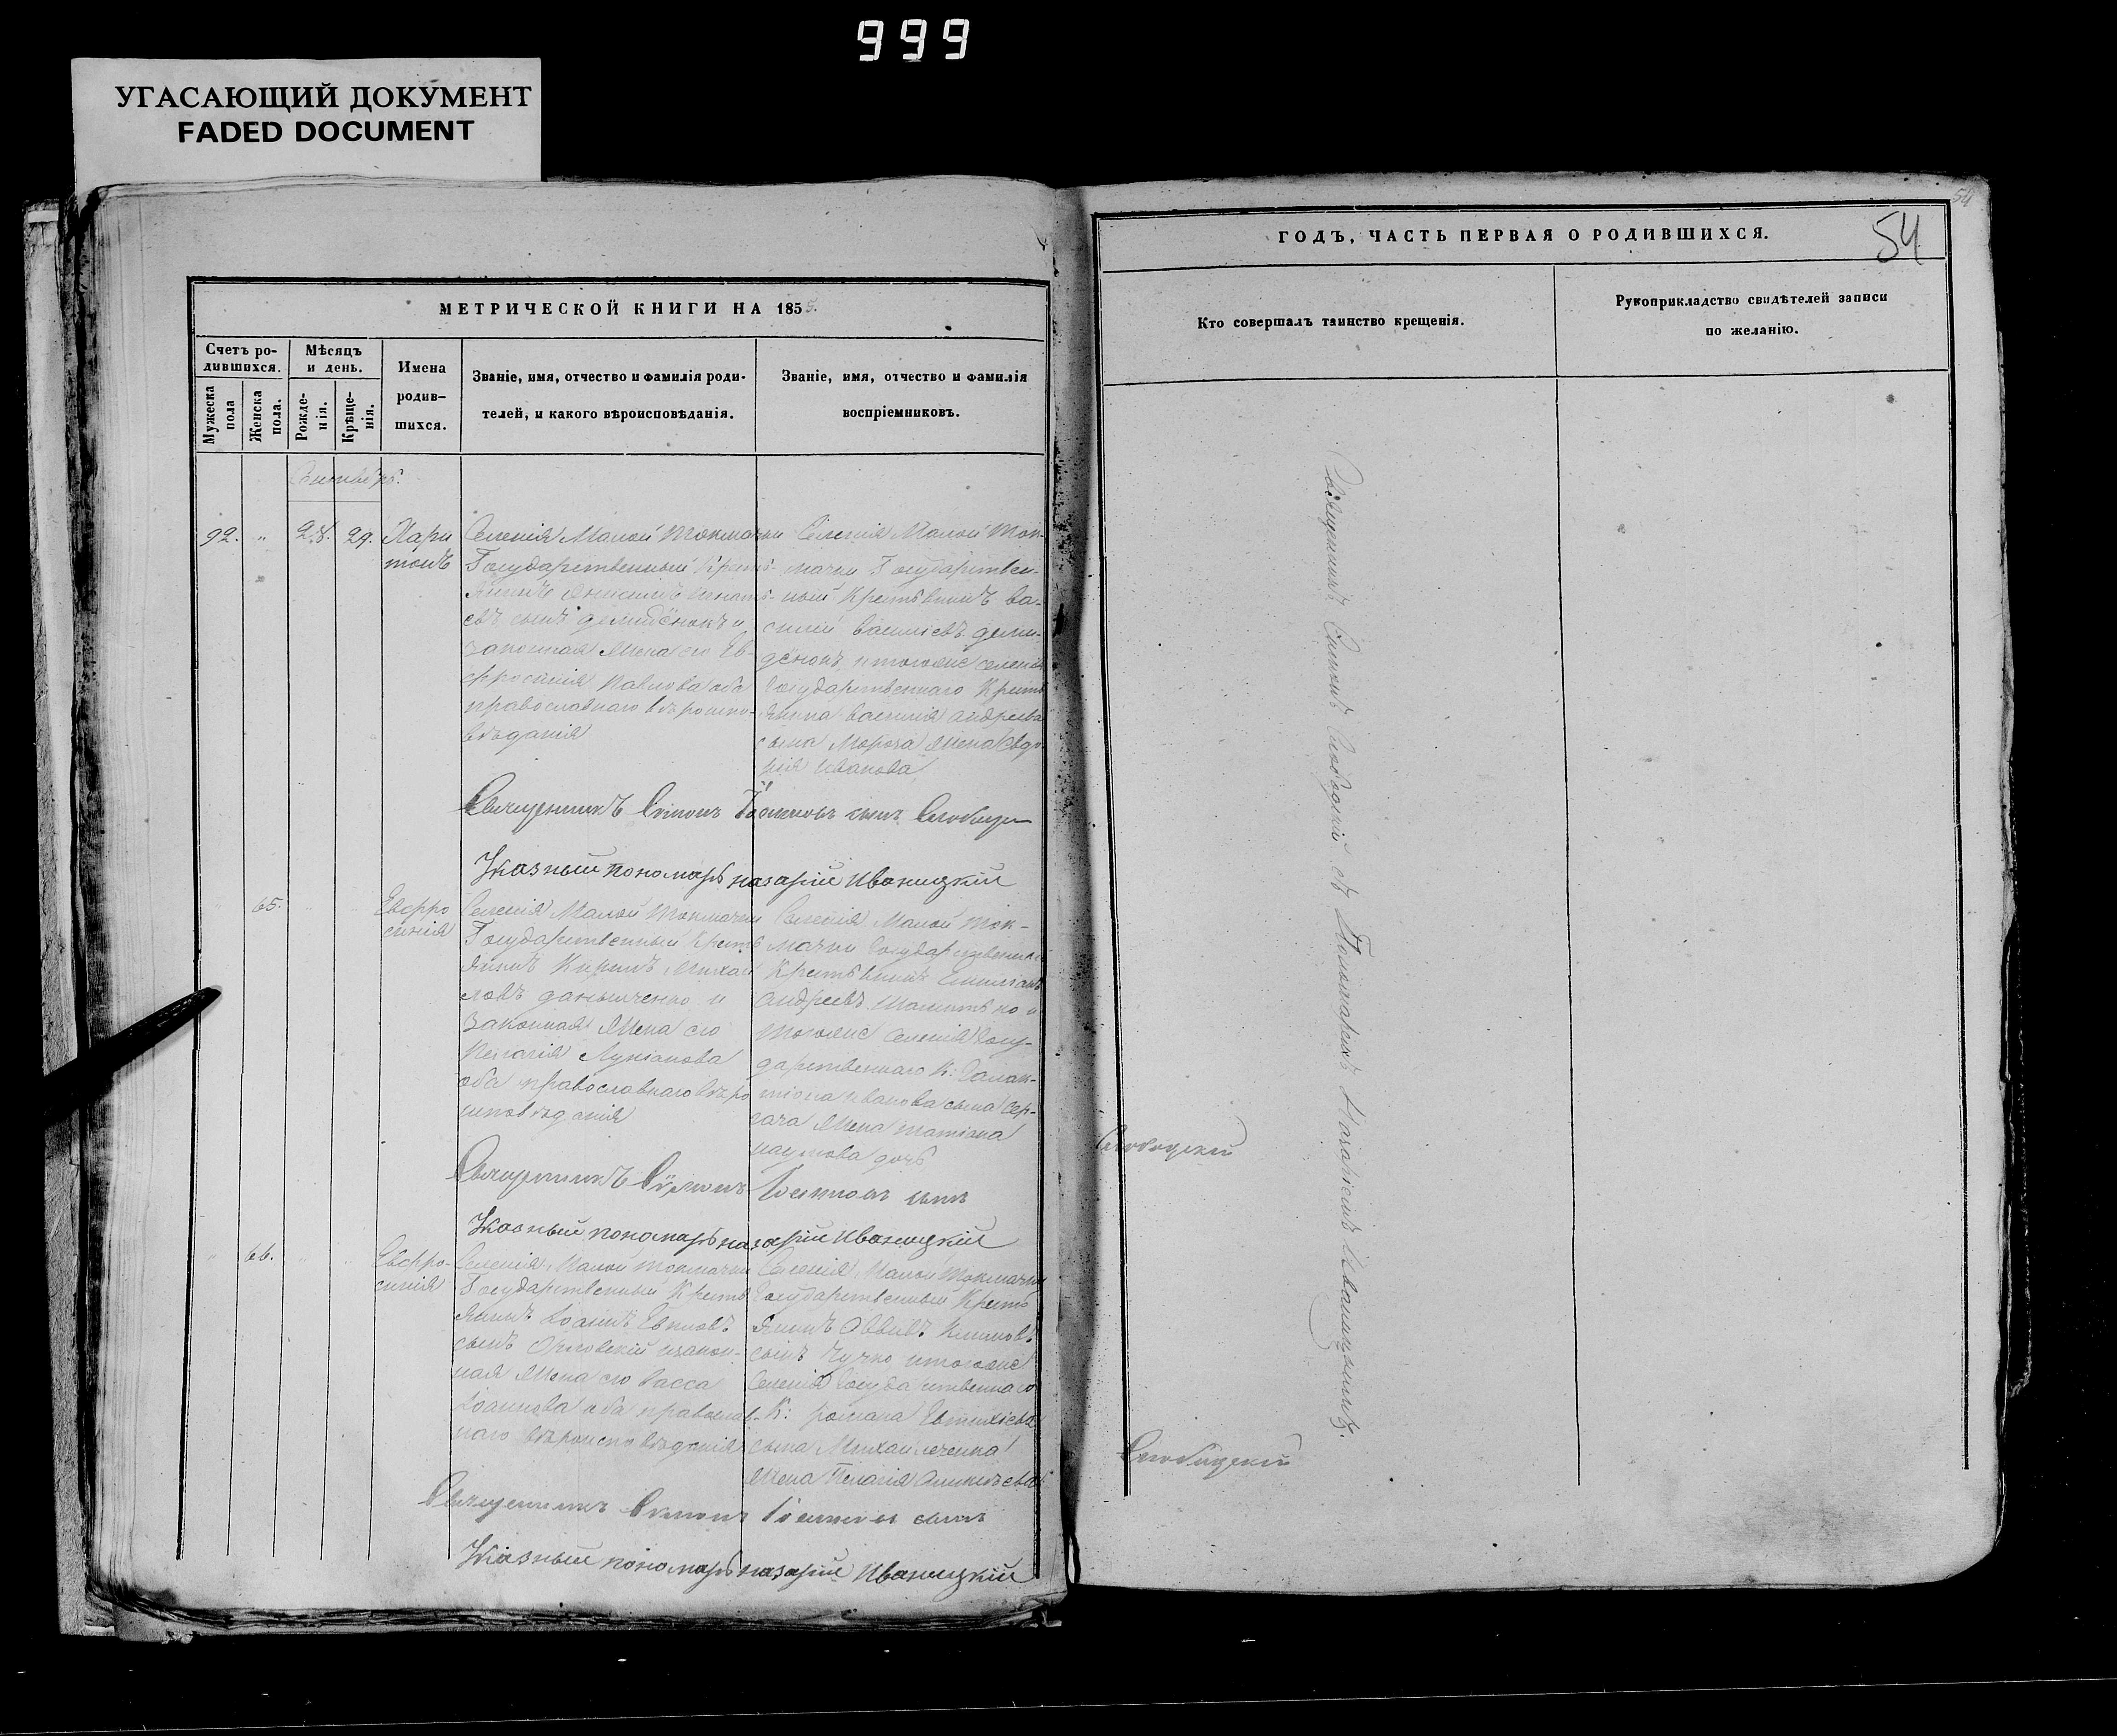 999
УГАСАЮЩИЙ ДОКУМЕНТ
FADED DOCUMENT
54
МЕТРИЧЕСКОЙ КНИГИ НА 1855.
Счетъ ро-
дившихся.
Мѣсяцъ
и день.
Мужеска
пола
Женска
пола.
Рожде-
нія.
Крѣще-
нія.
Имена
родив-
шихся.
Званіе, имя, отчество и фамилія роди-
телей, и какого вѣроисповѣданія.
Званіе, имя, отчество и фамилія
воспріемниковъ.
Сентябрь.
92. " 28. 29.
Хари
тонъ
Селенія Малой Токмачки
Государственный Кресть-
янинъ Онисимъ Игнать-
евъ сынъ Демидёнокъ и
законная жена его Ев-
фросинія Павлова оба
православнаго вѣроиспо-
вѣданія
Селенія Малой Ток-
мачки Государствен-
ный Крестьянинъ Ва-
силій Васильевъ Деми-
дёнокъ и тогоже селенія
Государственнаго Кресть
янина Василія Андреева
сына Мороза жена Евдо-
кія Иванова
Священникъ Симонъ Іоанновъ сынъ Слобицкі
Указный пономарь Назарій Иваницкій
" 65. " "
Евфро
синія
Селенія Малой Токмачки
Государственный Кресть
янинъ Кирилъ Михай
ловъ Данильченко и
законная жена его
Пелагія Лукіанова
оба православнаго вѣро
исповѣданія
Селенія Малой Ток-
мачки Государственный
Крестьянинъ Емиліанъ
Андреевъ
тогоже селенія Госу-
дарственнаго К: Галак-
тіона Иванова сына Сер-
гача жена Татіана
Наумова дочь
Священникъ Симонъ Іоанновъ сынъ
Слобицкій
Указный пономарь Назарій Иваницкій
" 66. " "
Евфро-
синія
Селенія Малой Токмачки
Государственный Кресть
янинъ Іоаннъ
сынъ Орловскій и закон-
ная жена его Васса
Іоаннова оба православ-
наго вѣроисповѣданія
Селенія Малой Токмачки
Государственный Кресть
янинъ Климовъ
сынъ Чучко и тогоже
Селенія Государственнаго
К: Романа Евтихіева
сына Михайличенка
жена Пелагія
Священникъ Симонъ Іоанновъ сынъ
Слобицкій
Указный пономарь Назарій Иваницкій
54
ГОДЪ, ЧАСТЬ ПЕРВАЯ О РОДИВШИХСЯ.
Кто совершалъ таинство крещенія.
Рукоприкладство свидѣтелей записи
по желанію.
Священникъ Симонъ Слобицкій съ Пономаремъ Назаріемъ Иваницкимъ.